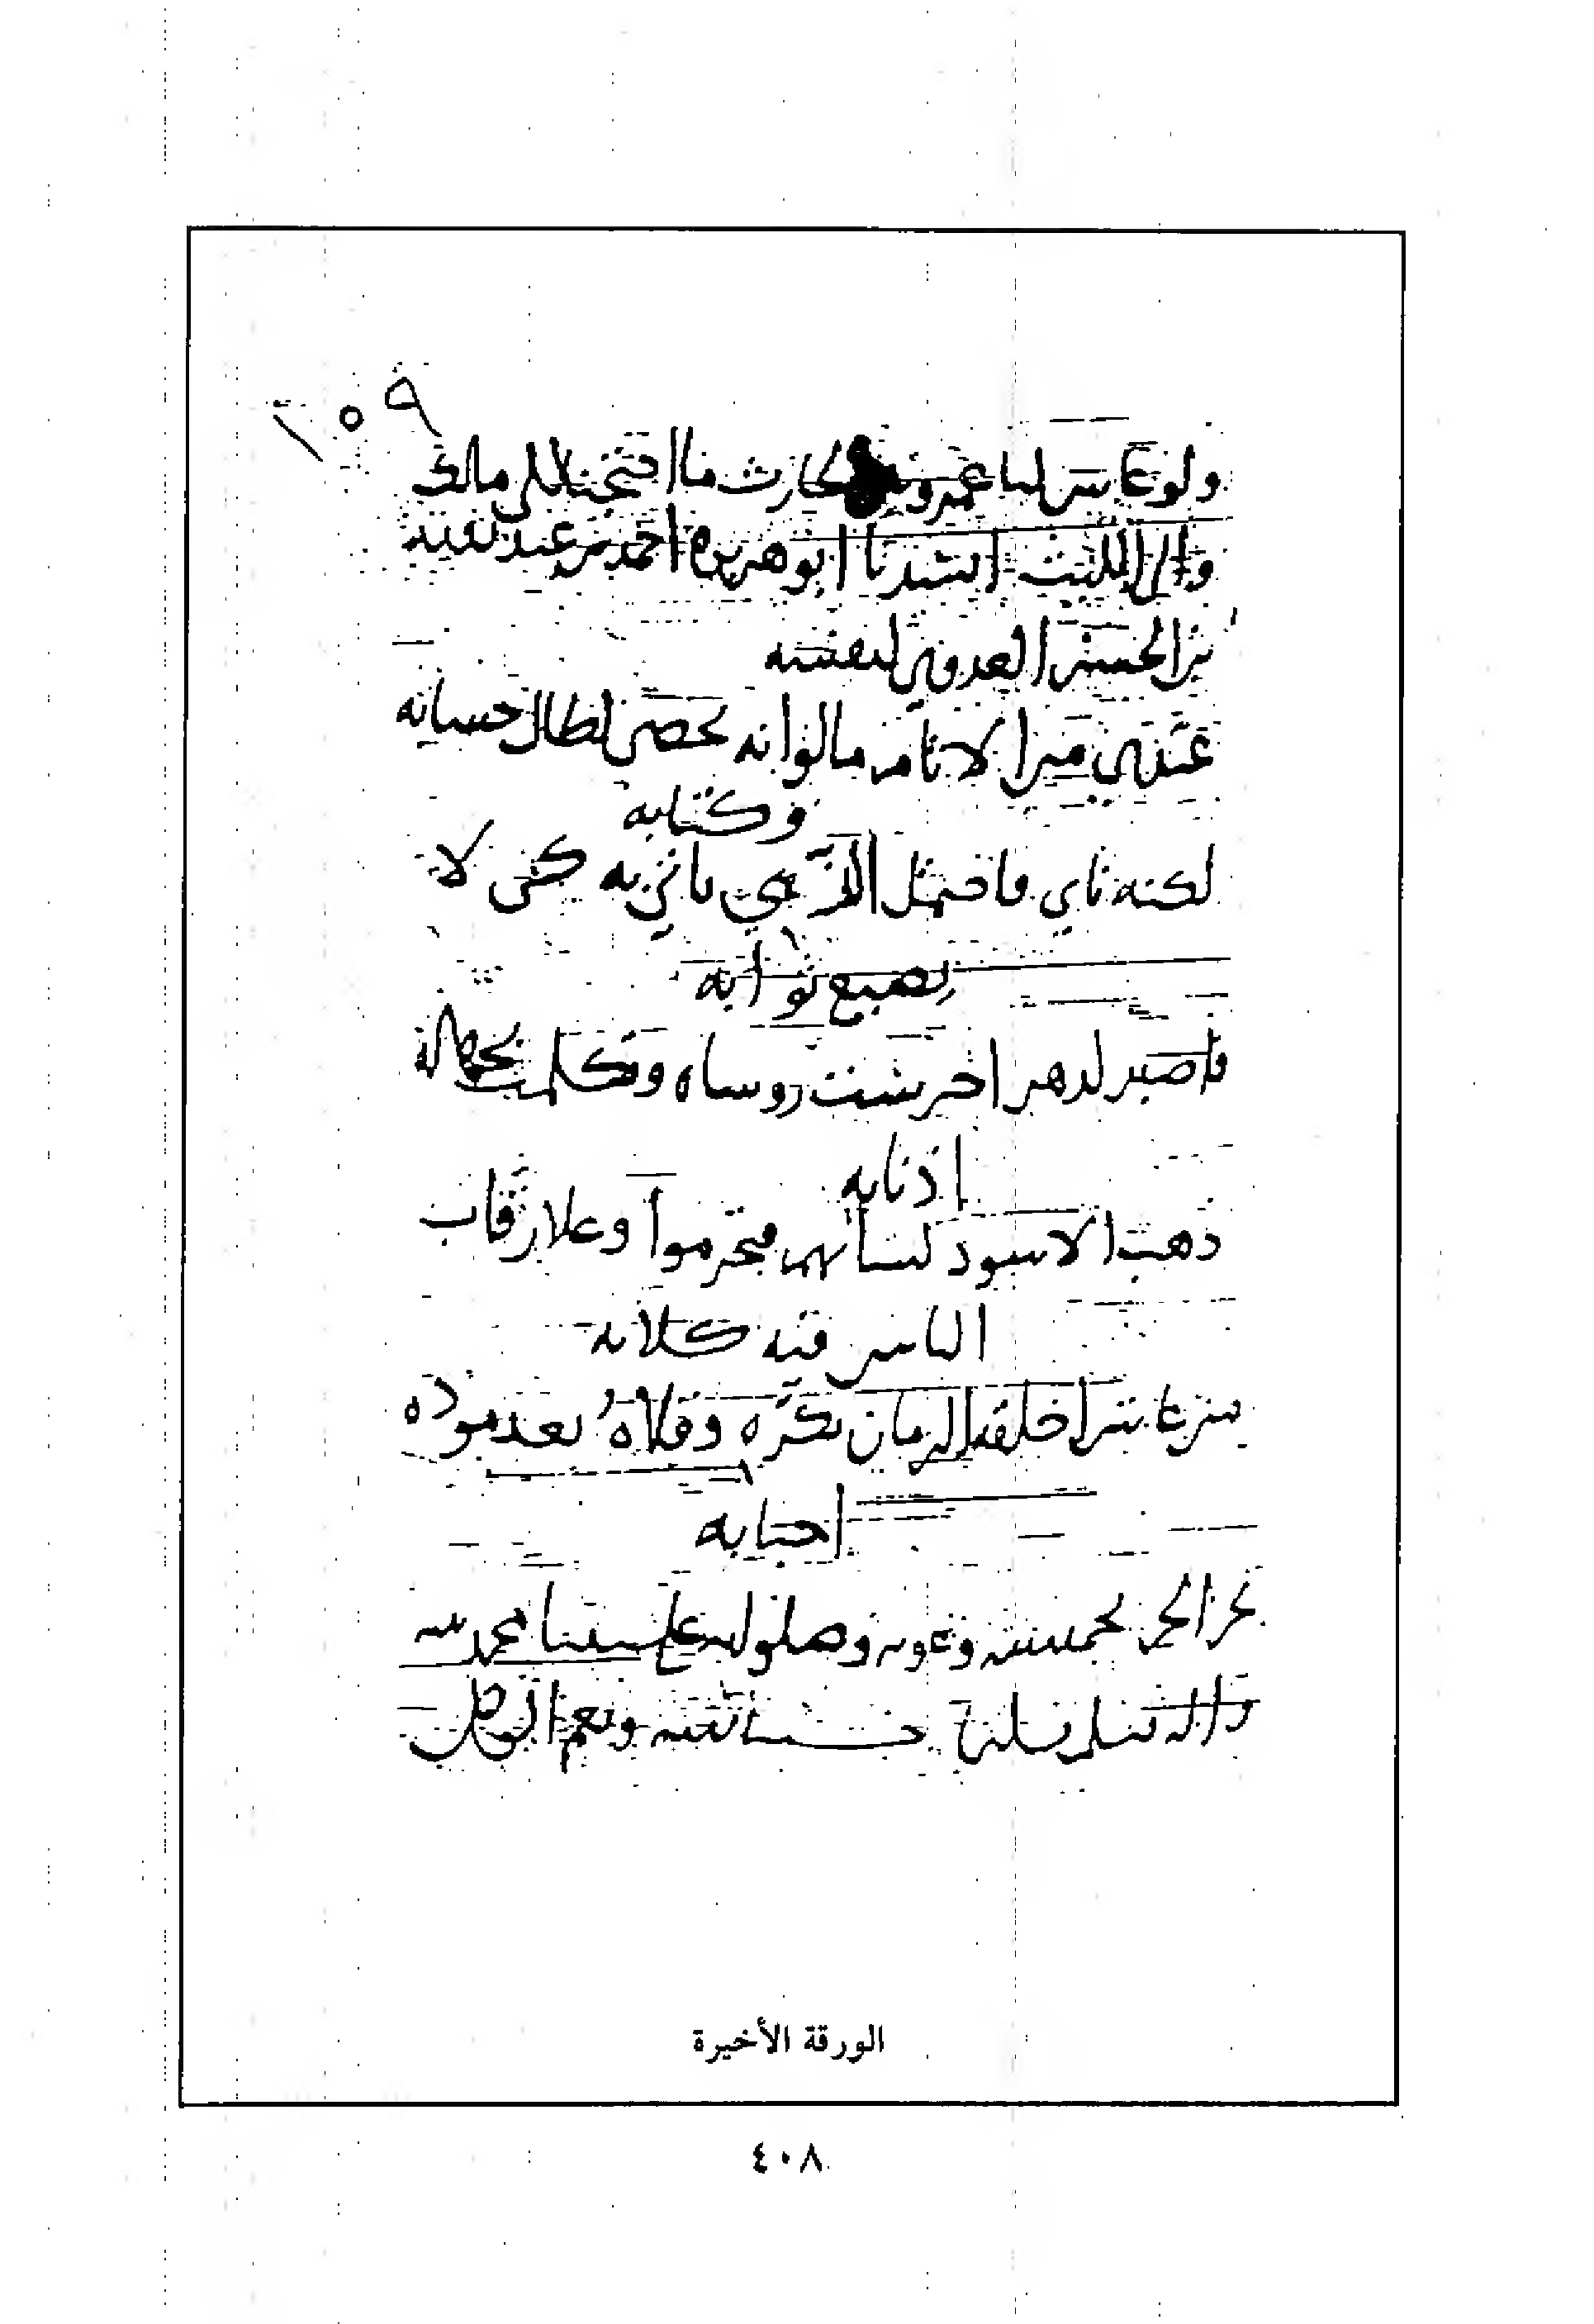 ١٠٩
ولو عاش لنا عمرو بن الحارث ما احتجنا الى مالك
وا الليث انشدنا ابو هريرة احمد بن عبد الله
بن الحسن العدوي لنفسه
عندي من الانام ما لو انه يحصى لطال حسابه
وكتابه
لكنه ياتي فاحتمل الذي ياتي به كي لا
يضيع ثوابه
فاصبر لدهر اخرست روساه وتكلمت بجهالة
اذنابه
ذهب الاسود كسانهم فتجرموا وعلا رقاب
الناس فيه كلابه
من عاش اخلقه الزمان بكره وقلاه بعد موده
احبابه
نجز الجز بحمد الله وعونه وصلواته على سيدنا محمد
واله وسلم تسليما حسبنا الله ونعم الوكيل
الورقة الأخيرة
٤٠٨